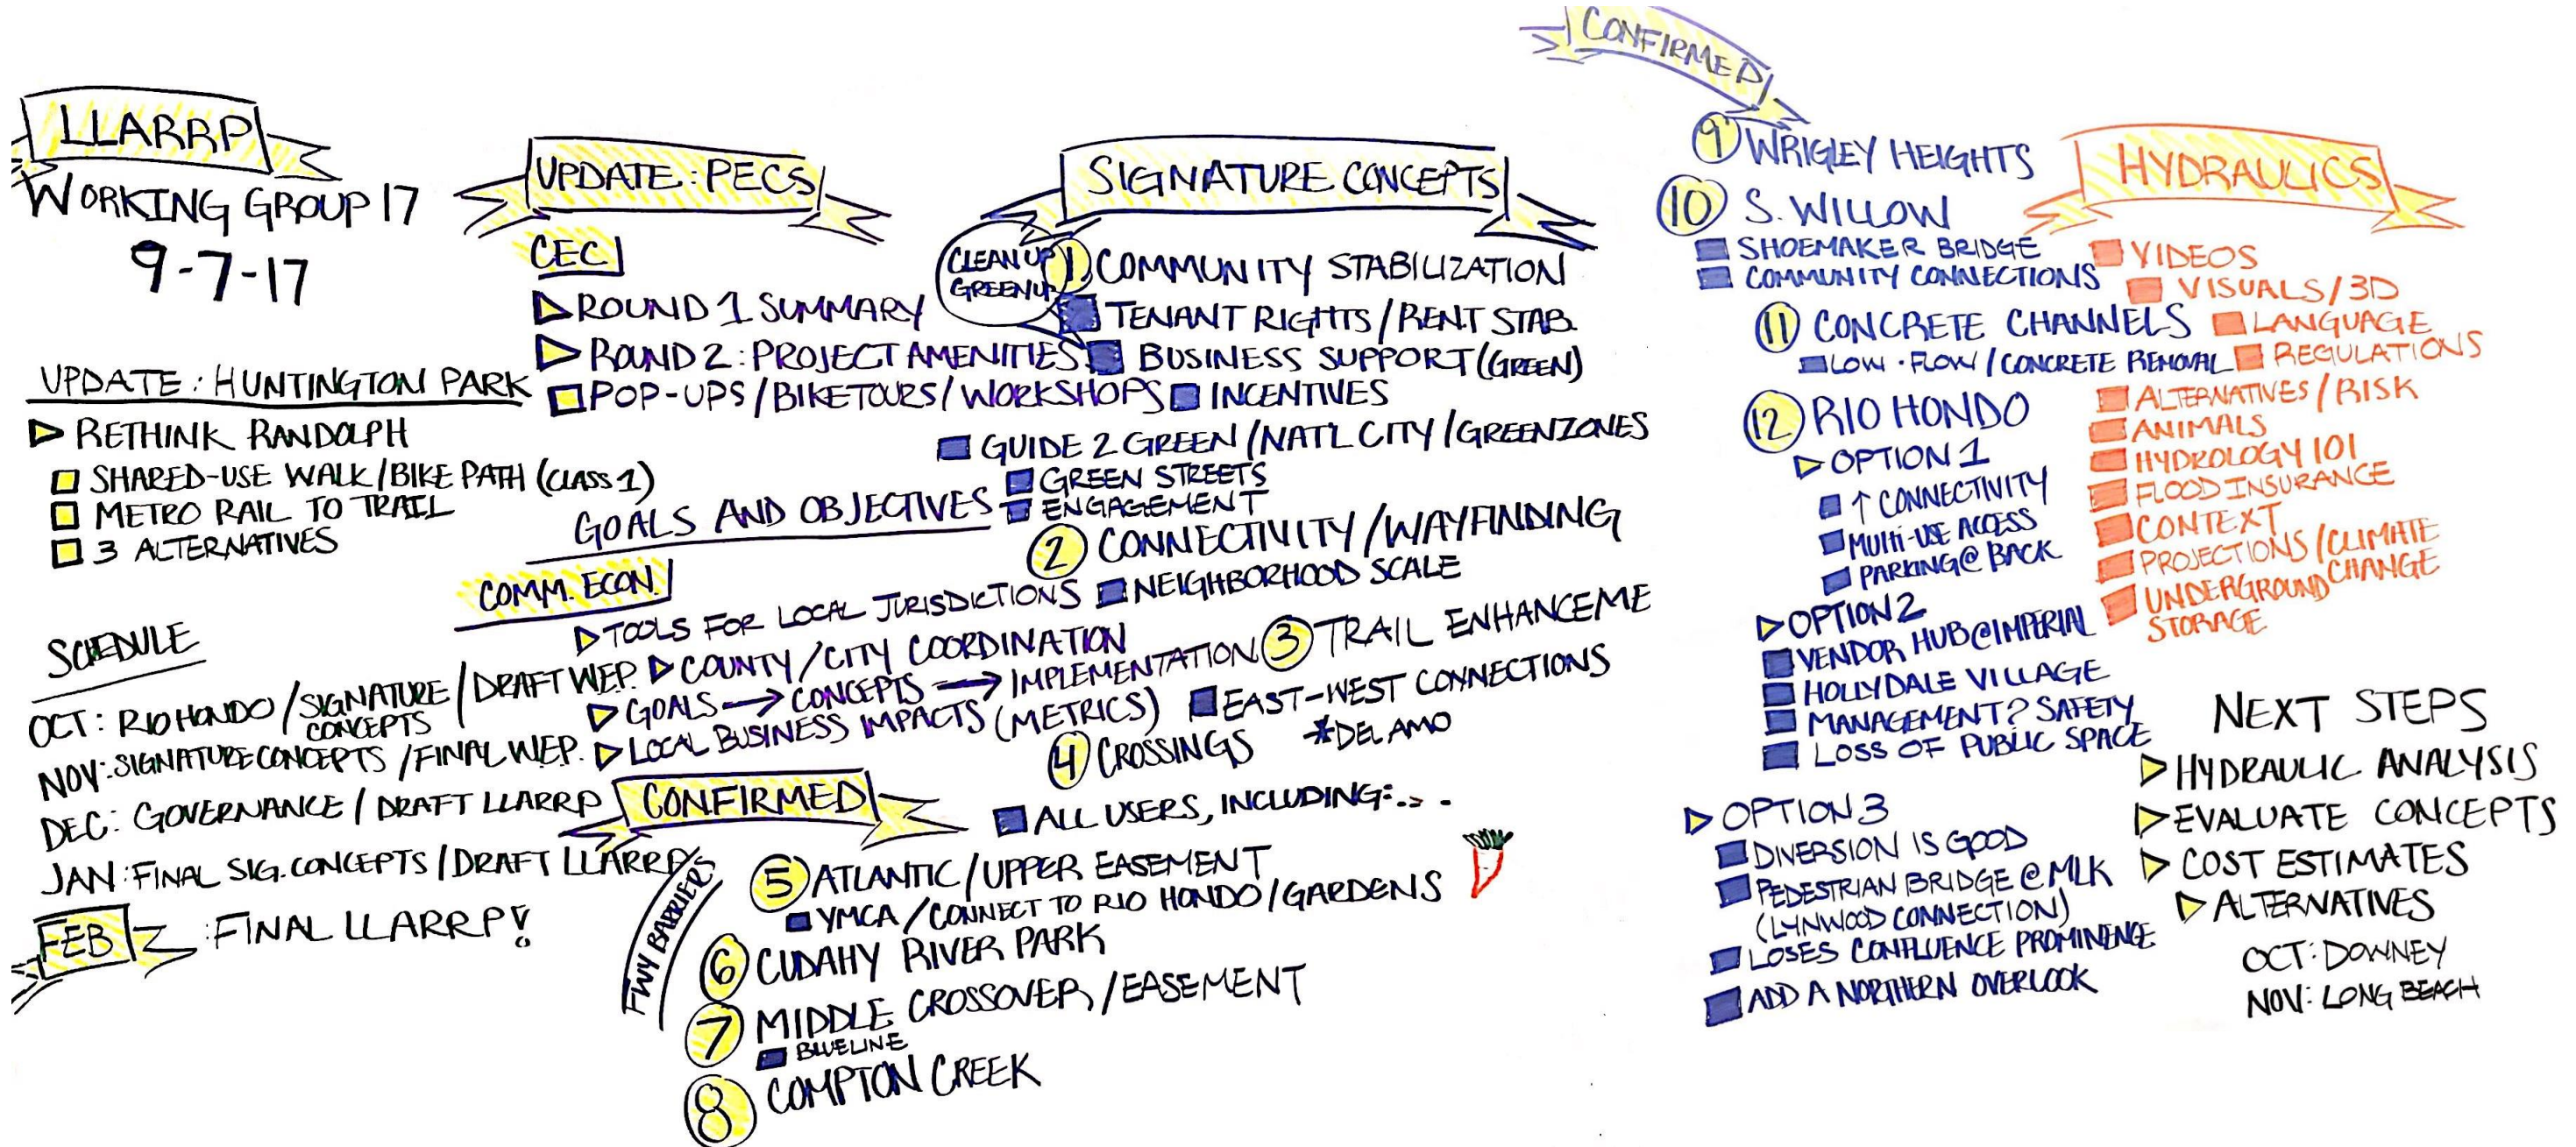 LLARRP
WORKING GROUP 17
9-7-17
UPDATE: HUNTINGTON PARK
RETHINK RANDOLPH
SHARED-USE WALK/BIKE PATH (CLASS 1)
METRO RAIL TO TRAIL
3 ALTERNATIVES
SCHEDULE
OCT: RIO HONDO/SIGNATURE CONCEPTS/DRAFT WEP.
NOV: SIGNATURE CONCEPTS/FINAL WEP.
DEC: GOVERNANCE/DRAFT LLARRP
JAN: FINAL SIG. CONCEPTS/DRAFT LLARRP
FEB: FINAL LLARRP!
UPDATE: PECS
CEC
ROUND 1 SUMMARY
ROUND 2: PROJECT AMENITIES
POP-UPS/BIKE TOURS/WORKSHOPS
GOALS AND OBJECTIVES
COMM. ECON.
TOOLS FOR LOCAL JURISDICTIONS
COUNTY/CITY COORDINATION
GOALS → CONCEPTS → IMPLEMENTATION
LOCAL BUSINESS IMPACTS (METRICS)
SIGNATURE CONCEPTS
CLEAN UP
GREEN UP
1. COMMUNITY STABILIZATION
TENANT RIGHTS/RENT STAB.
BUSINESS SUPPORT (GREEN)
INCENTIVES
GUIDE 2 GREEN/NATL CITY/GREENZONES
GREEN STREETS
ENGAGEMENT
2 CONNECTIVITY/WAYFINDING
NEIGHBORHOOD SCALE
3 TRAIL ENHANCEME
EAST-WEST CONNECTIONS
*DEL AMO
4 CROSSINGS
ALL USERS, INCLUDING:...
CONFIRMED
FWY BARRIERS
5 ATLANTIC/UPPER EASEMENT
YMCA/CONNECT TO RIO HONDO/GARDENS
6 CUDAHY RIVER PARK
7 MIDDLE CROSSOVER/EASEMENT
BLUELINE
8 COMPTON CREEK
CONFIRMED
9 WRIGLEY HEIGHTS
10 S. WILLOW
SHOEMAKER BRIDGE
COMMUNITY CONNECTIONS
11 CONCRETE CHANNELS
LOW-FLOW/CONCRETE REMOVAL
12 RIO HONDO
OPTION 1
↑ CONNECTIVITY
MULTI-USE ACCESS
PARKING @ BACK
OPTION 2
VENDOR HUB @ IMPERIAL
HOLLYDALE VILLAGE
MANAGEMENT? SAFETY
LOSS OF PUBLIC SPACE
OPTION 3
DIVERSION IS GOOD
PEDESTRIAN BRIDGE @ MLK
(LYNWOOD CONNECTION)
LOSES CONFLUENCE PROMINENCE
ADD A NORTHERN OVERLOOK
HYDRAULICS
VIDEOS
VISUALS/3D
LANGUAGE
REGULATIONS
ALTERNATIVES/RISK
ANIMALS
HYDROLOGY 101
FLOOD INSURANCE
CONTEXT
PROJECTIONS/CLIMATE
CHANGE
UNDERGROUND
STORAGE
NEXT STEPS
HYDRAULIC ANALYSIS
EVALUATE CONCEPTS
COST ESTIMATES
ALTERNATIVES
OCT: DOWNEY
NOV: LONG BEACH